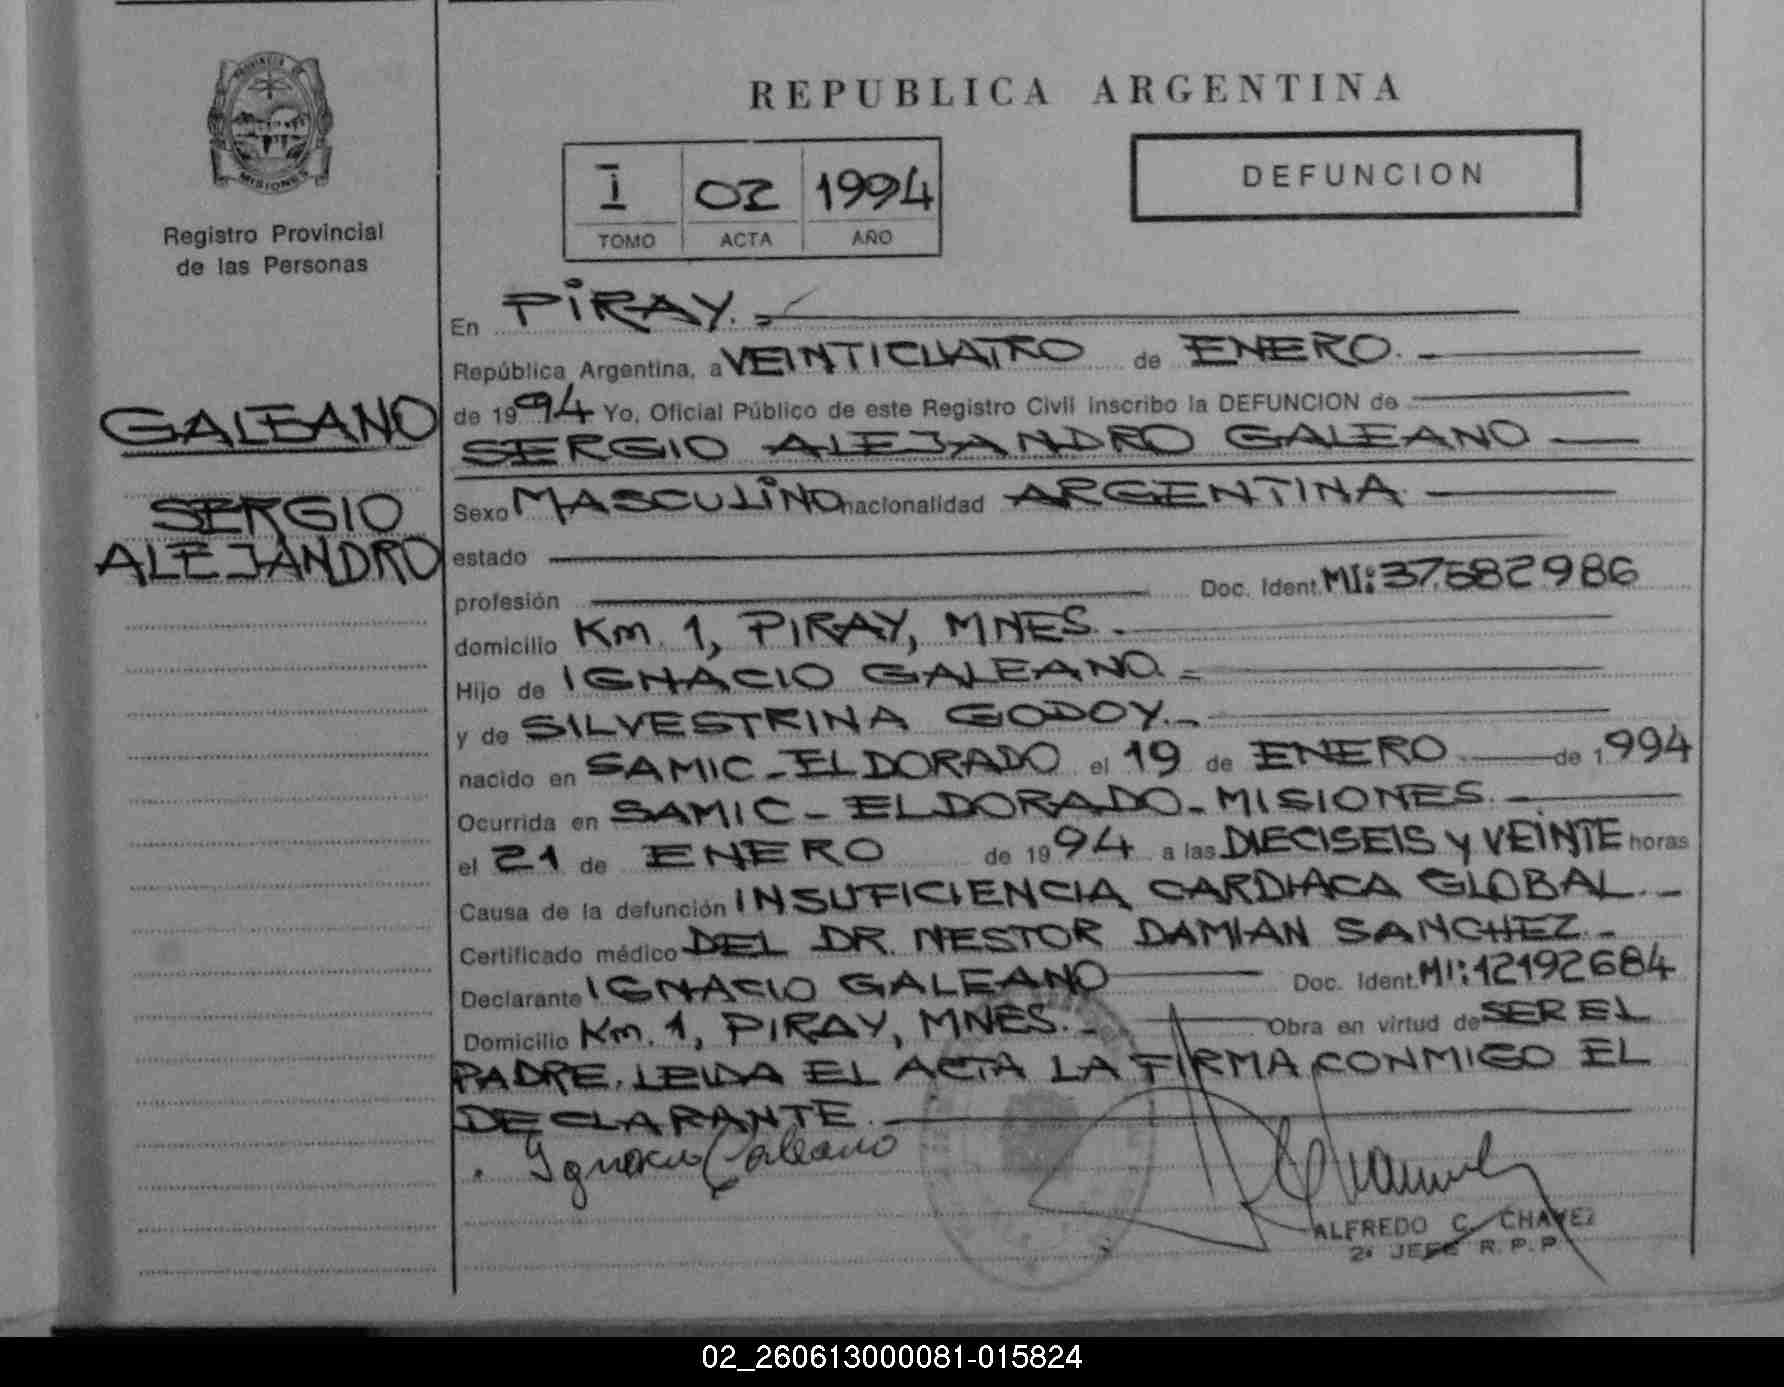 PROVINCIA DE
MISIONES
Registro Provincial
de las Personas
GALEANO
SERGIO
ALEJANDRO
REPUBLICA ARGENTINA
I 02 1994
TOMO ACTA AÑO
DEFUNCION
En PIRAY.
República Argentina, a VEINTICUATRO de ENERO.
de 1994 Yo, Oficial Público de este Registro Civil inscribo la DEFUNCION de
SERGIO ALEJANDRO GALEANO
Sexo MASCULINO nacionalidad ARGENTINA
estado
profesión Doc. Ident. MI: 37.682986
domicilio Km. 1, PIRAY, MNES.
Hijo de IGNACIO GALEANO.
y de SILVESTRINA GODOY.
nacido en SAMIC-ELDORADO el 19 de ENERO de 1994
Ocurrida en SAMIC-ELDORADO-MISIONES.
el 21 de ENERO de 1994 a las DIECISEIS y VEINTE horas
Causa de la defunción INSUFICIENCIA CARDIACA GLOBAL.
Certificado médico DEL DR. NESTOR DAMIAN SANCHEZ.
Declarante IGNACIO GALEANO Doc. Ident. MI: 12192684
Domicilio Km. 1, PIRAY, MNES. Obra en virtud de SER EL
PADRE. LEIDA EL ACTA LA FIRMA CONMIGO EL
DECLARANTE.
Ignacio Galeano
ALFREDO C. CHAVEZ
2º JEFE R.P.P.
02_260613000081-015824